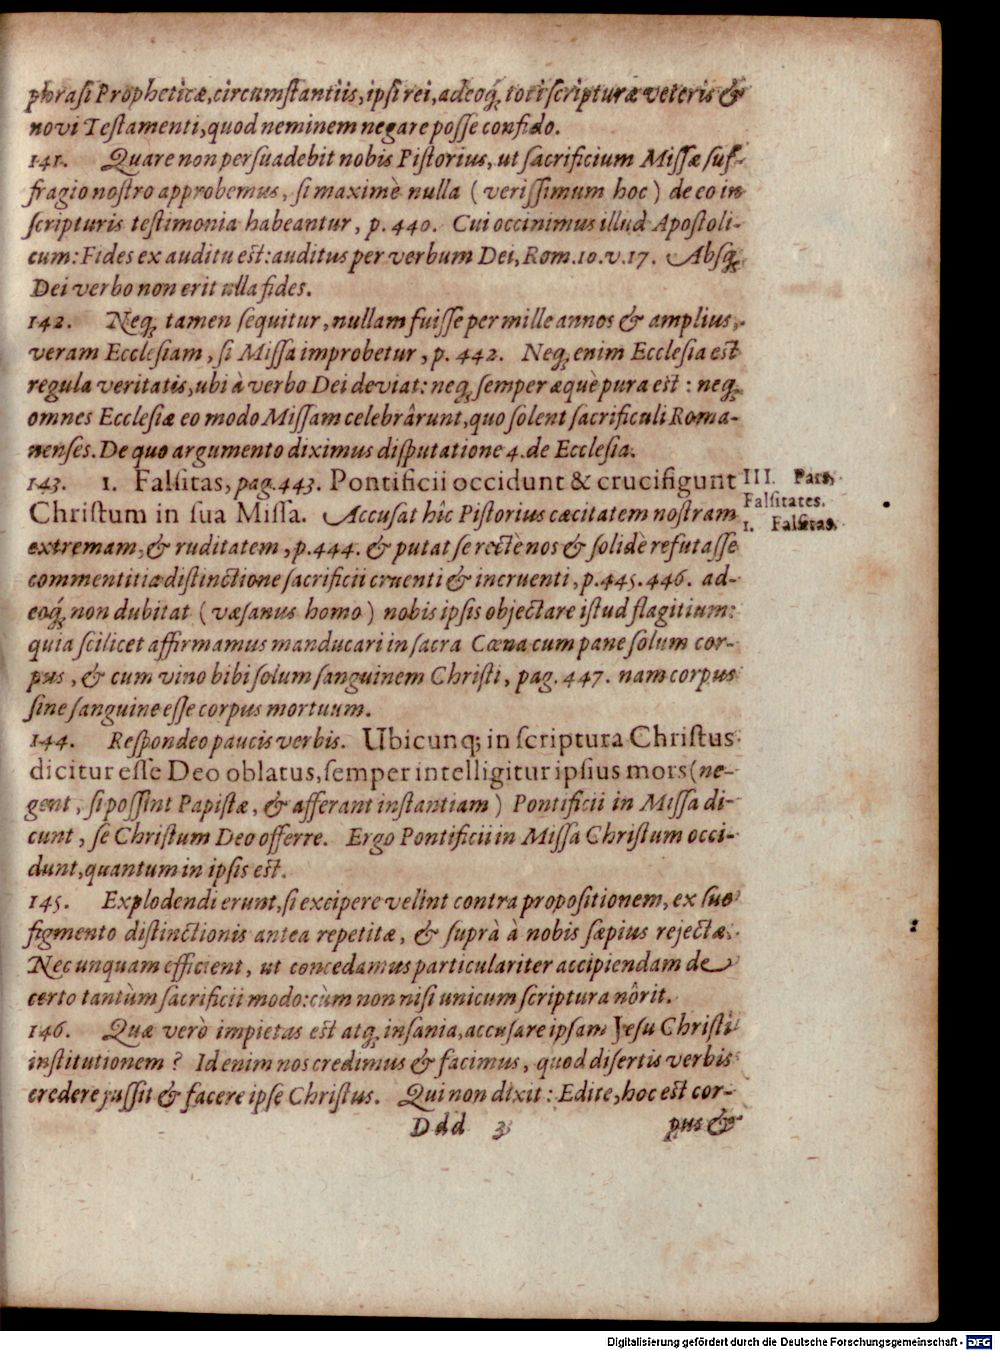 phrasi Propheticæ, circumstantiis, ipsi rei, adeoq́; toti scripturæ veteris &
novi Testamenti, quod neminem negare posse confido.
141. Quare non persuadebit nobis Pistorius, ut sacrificium Missæ suf-
fragio nostro approbemus, si maximè nulla (verissimum hoc) de eo in
scripturis testimonia habeantur, p. 440. Cui occinimus illud Apostoli-
cum: Fides ex auditu est: auditus per verbum Dei, Rom. 10. v. 17. Absq;
Dei verbo non erit ulla fides.
142. Neq; tamen sequitur, nullam fuisse per mille annos & amplius,
veram Ecclesiam, si Missa improbetur, p. 442. Neq; enim Ecclesia est
regula veritatis, ubi à verbo Dei deviat: neq; semper æquè pura est: neq;
omnes Ecclesiæ eo modo Missam celebrârunt, quo solent sacrificuli Roma-
nenses. De quo argumento diximus disputatione 4. de Ecclesia.
143. 1. Falsitas, pag. 443. Pontificii occidunt & crucifigunt
Christum in sua Missa. Accusat hîc Pistorius cæcitatem nostram
extremam, & ruditatem, p. 444. & putat se rectè nos & solidè refutasse
commentitia distinctione sacrificii cruenti & incruenti, p. 445. 446. ad-
eoq́; non dubitat (væsanus homo) nobis ipsis objectare istud flagitium:
quia scilicet affirmamus manducari in sacra Cœna cum pane solum cor-
pus, & cum vino bibi solum sanguinem Christi, pag. 447. nam corpus
sine sanguine esse corpus mortuum.
III. Pars,
Falsitates.
1. Falsitas.
144. Respondeo paucis verbis. Ubicunq; in scriptura Christus
dicitur esse Deo oblatus, semper intelligitur ipsius mors (ne-
gent, si possint Papistæ, & afferant instantiam) Pontificii in Missa di-
cunt, se Christum Deo offerre. Ergo Pontificii in Missa Christum occi-
dunt, quantum in ipsis est.
145. Explodendi erunt, si excipere velint contra propositionem, ex suo
figmento distinctionis antea repetitæ, & suprà à nobis sæpius rejectæ.
Nec unquam efficient, ut concedamus particulariter accipiendam de
certo tantùm sacrificii modo: cùm non nisi unicum scriptura nôrit.
146. Quæ verò impietas est atq; insania, accusare ipsam Jesu Christi
institutionem? Id enim nos credimus & facimus, quod disertis verbis
credere jussit & facere ipse Christus. Qui non dixit: Edite, hoc est cor-
Ddd 3 pus &
Digitalisierung gefördert durch die Deutsche Forschungsgemeinschaft - DFG